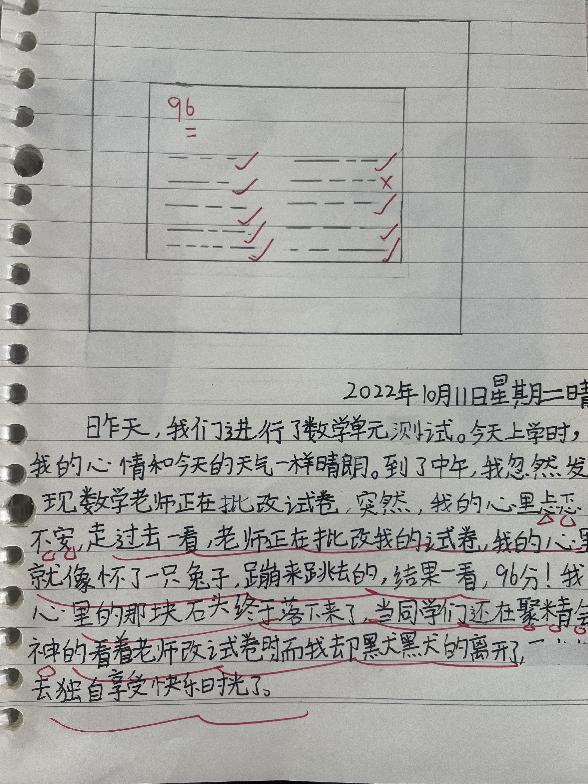 96
2022年10月11日星期二晴
昨天,我们进行了数学单元测试。今天上学时,
我的心情和今天的天气一样晴朗。到了中午,我忽然发
现数学老师正在批改试卷,突然,我的心里忐忑
不安,走过去一看,老师正在批改我的试卷,我的心里
就像怀了一只兔子,蹦来跳去的,结果一看,96分!我
心里的那块石头终于落下来了,当同学们还在聚精会
神的看着老师改试卷时而我却默默的离开了,
去独自享受快乐时光了。